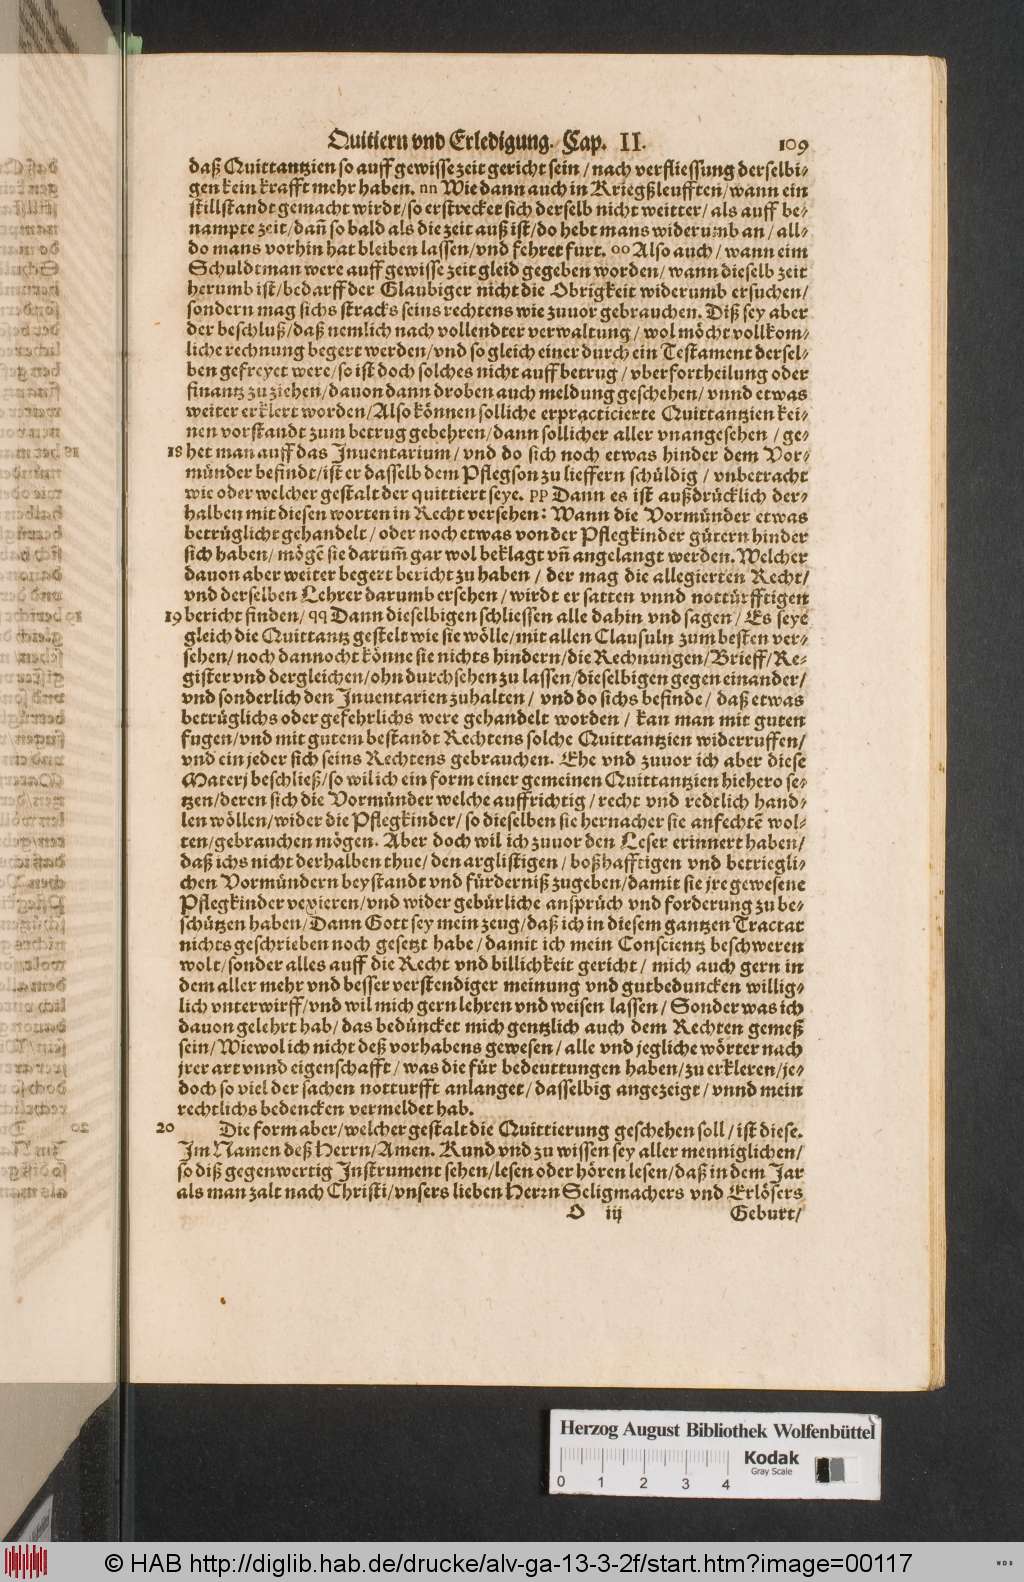 Quitiern vnd Erledigung. Cap. II. 109
daß Quittantzien so auff gewisse zeit gericht sein / nach verfliessung derselbi-
gen kein krafft mehr haben. nn Wie dann auch in Kriegßleufften/ wann ein
stillstandt gemacht wirdt/ so erstrecket sich derselb nicht weitter/ als auff be-
nampte zeit/ dañ so bald als die zeit auß ist/ do hebt mans widerumb an / all-
do mans vorhin hat bleiben lassen/ vnd fehret furt. oo Also auch/ wann eim
Schuldtman were auff gewisse zeit gleid gegeben worden/ wann dieselb zeit
herumb ist/ bedarff der Glaubiger nicht die Obrigkeit widerumb ersuchen/
sondern mag sichs stracks seins rechtens wie zuuor gebrauchen. Diß sey aber
der beschluß/ daß nemlich nach vollendter verwaltung / wol möcht vollkom-
liche rechnung begert werden/ vnd so gleich einer durch ein Testament dersel-
ben gefreyet were/ so ist doch solches nicht auff betrug / vberfortheilung oder
finantz zu ziehen/ dauon dann droben auch meldung geschehen/ vnnd etwas
weiter erklert worden/ Also können solliche erpracticierte Quittantzien kei-
nen vorstandt zum betrug gebehren/ dann sollicher aller vnangesehen / ge-
18 het man auff das Inuentarium / vnd do sich noch etwas hinder dem Vor-
münder befindt/ ist er dasselb dem Pflegson zu lieffern schüldig / vnbetracht
wie oder welcher gestalt der quittiert seye. pp Dann es ist außdrücklich der-
halben mit diesen worten in Recht versehen: Wann die Vormünder etwas
betrüglicht gehandelt / oder noch etwas von der Pflegkinder gütern hinder
sich haben/ mögẽ sie darum̃ gar wol beklagt vñ angelangt werden. Welcher
dauon aber weiter begert bericht zu haben / der mag die allegierten Recht/
vnd derselben Lehrer darumb ersehen / wirdt er satten vnnd nottürfftigen
19 bericht finden/ qq Dann dieselbigen schliessen alle dahin vnd sagen / Es seye
gleich die Quittantz gestelt wie sie wölle/ mit allen Clausuln zum besten ver-
sehen/ noch dannocht könne sie nichts hindern/ die Rechnungen/ Brieff/ Re-
gister vnd dergleichen/ ohn durchsehen zu lassen/ dieselbigen gegen einander/
vnd sonderlich den Inuentarien zuhalten / vnd do sichs befinde / daß etwas
betrüglichs oder gefehrlichs were gehandelt worden / kan man mit guten
fugen/ vnd mit gutem bestandt Rechtens solche Quittantzien widerruffen/
vnd ein jeder sich seins Rechtens gebrauchen. Ehe vnd zuuor ich aber diese
Materj beschließ/ so wil ich ein form einer gemeinen Quittantzien hiehero se-
tzen/ deren sich die Vormünder welche auffrichtig / recht vnd redtlich hand-
len wöllen/ wider die Pflegkinder/ so dieselben sie hernacher sie anfechtẽ wol-
ten/ gebrauchen mögen. Aber doch wil ich zuuor den Leser erinnert haben/
daß ichs nicht derhalben thue/ den arglistigen / boßhafftigen vnd betriegli-
chen Vormündern beystandt vnd fürderniß zugeben/ damit sie jre gewesene
Pflegkinder vexieren/ vnd wider gebürliche ansprüch vnd forderung zu be-
schützen haben/ Dann Gott sey mein zeug/ daß ich in diesem gantzen Tractat
nichts geschrieben noch gesetzt habe / damit ich mein Conscientz beschweren
wolt/ sonder alles auff die Recht vnd billichkeit gericht / mich auch gern in
dem aller mehr vnd besser verstendiger meinung vnd gutbeduncken willig-
lich vnterwirff/ vnd wil mich gern lehren vnd weisen lassen / Sonder was ich
dauon gelehrt hab/ das bedüncket mich gentzlich auch dem Rechten gemeß
sein/ Wiewol ich nicht deß vorhabens gewesen / alle vnd jegliche wörter nach
jrer art vnnd eigenschafft / was die für bedeuttungen haben/ zu erkleren/ je-
doch so viel der sachen notturfft anlanget / dasselbig angezeigt / vnnd mein
rechtlichs bedencken vermeldet hab.
20 Die form aber/ welcher gestalt die Quittierung geschehen soll / ist diese.
Im Namen deß Herrn/ Amen. Kund vnd zu wissen sey aller menniglichen/
so diß gegenwertig Instrument sehen/ lesen oder hören lesen/ daß in dem Jar
als man zalt nach Christi/ vnsers lieben Herrn Seligmachers vnd Erlösers
O iij Geburt/
Herzog August Bibliothek Wolfenbüttel
Kodak
Gray Scale
0 1 2 3 4
© HAB http://diglib.hab.de/drucke/alv-ga-13-3-2f/start.htm?image=00117